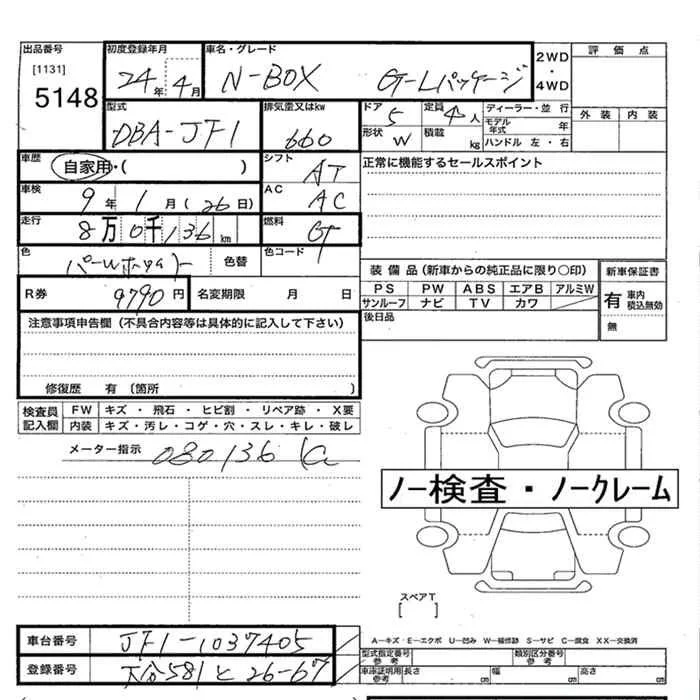 出品番号 初度登録年月 車名・グレード 2WD 評価点
[1131] 24年 4月 N-BOX G-Lパッケージ ・
5148 4WD
型式 排気量又はkw ドア 5 定員 4人 ディーラー・並行 外装 内装
DBA-JF1 660 モデル年式 年
形状 W 積載 kg ハンドル 左・右
車歴 自家用・( ) シフト AT 正常に機能するセールスポイント
車検 9年 1月 (26日) AC AC
走行 8万0千136km 燃料 G
色 パールホワイト 色替 色コード
装備品(新車からの純正品に限り○印) 新車保証書
R券 9790円 名変期限 月 日 PS PW ABS エアB アルミW 有 車内積込無効
サンルーフ ナビ TV カワ 無
注意事項申告欄(不具合内容等は具体的に記入して下さい) 後日品
修復歴 有(箇所 )
検査員記入欄 FW キズ・飛石・ヒビ割・リペア跡・X要
内装 キズ・汚レ・コゲ・穴・スレ・キレ・破レ
メーター指示 080136
ノー検査・ノークレーム
スペアT
[ ]
車台番号 JF1-1037405 A-キズ・E-エクボ U-凹み W-補修跡 S-サビ C-腐食 XX-交換済
型式指定番号 参考 類別区分番号 参考
登録番号 大分581 と 26-67 車庫証明用参考 長さ cm 幅 cm 高さ cm